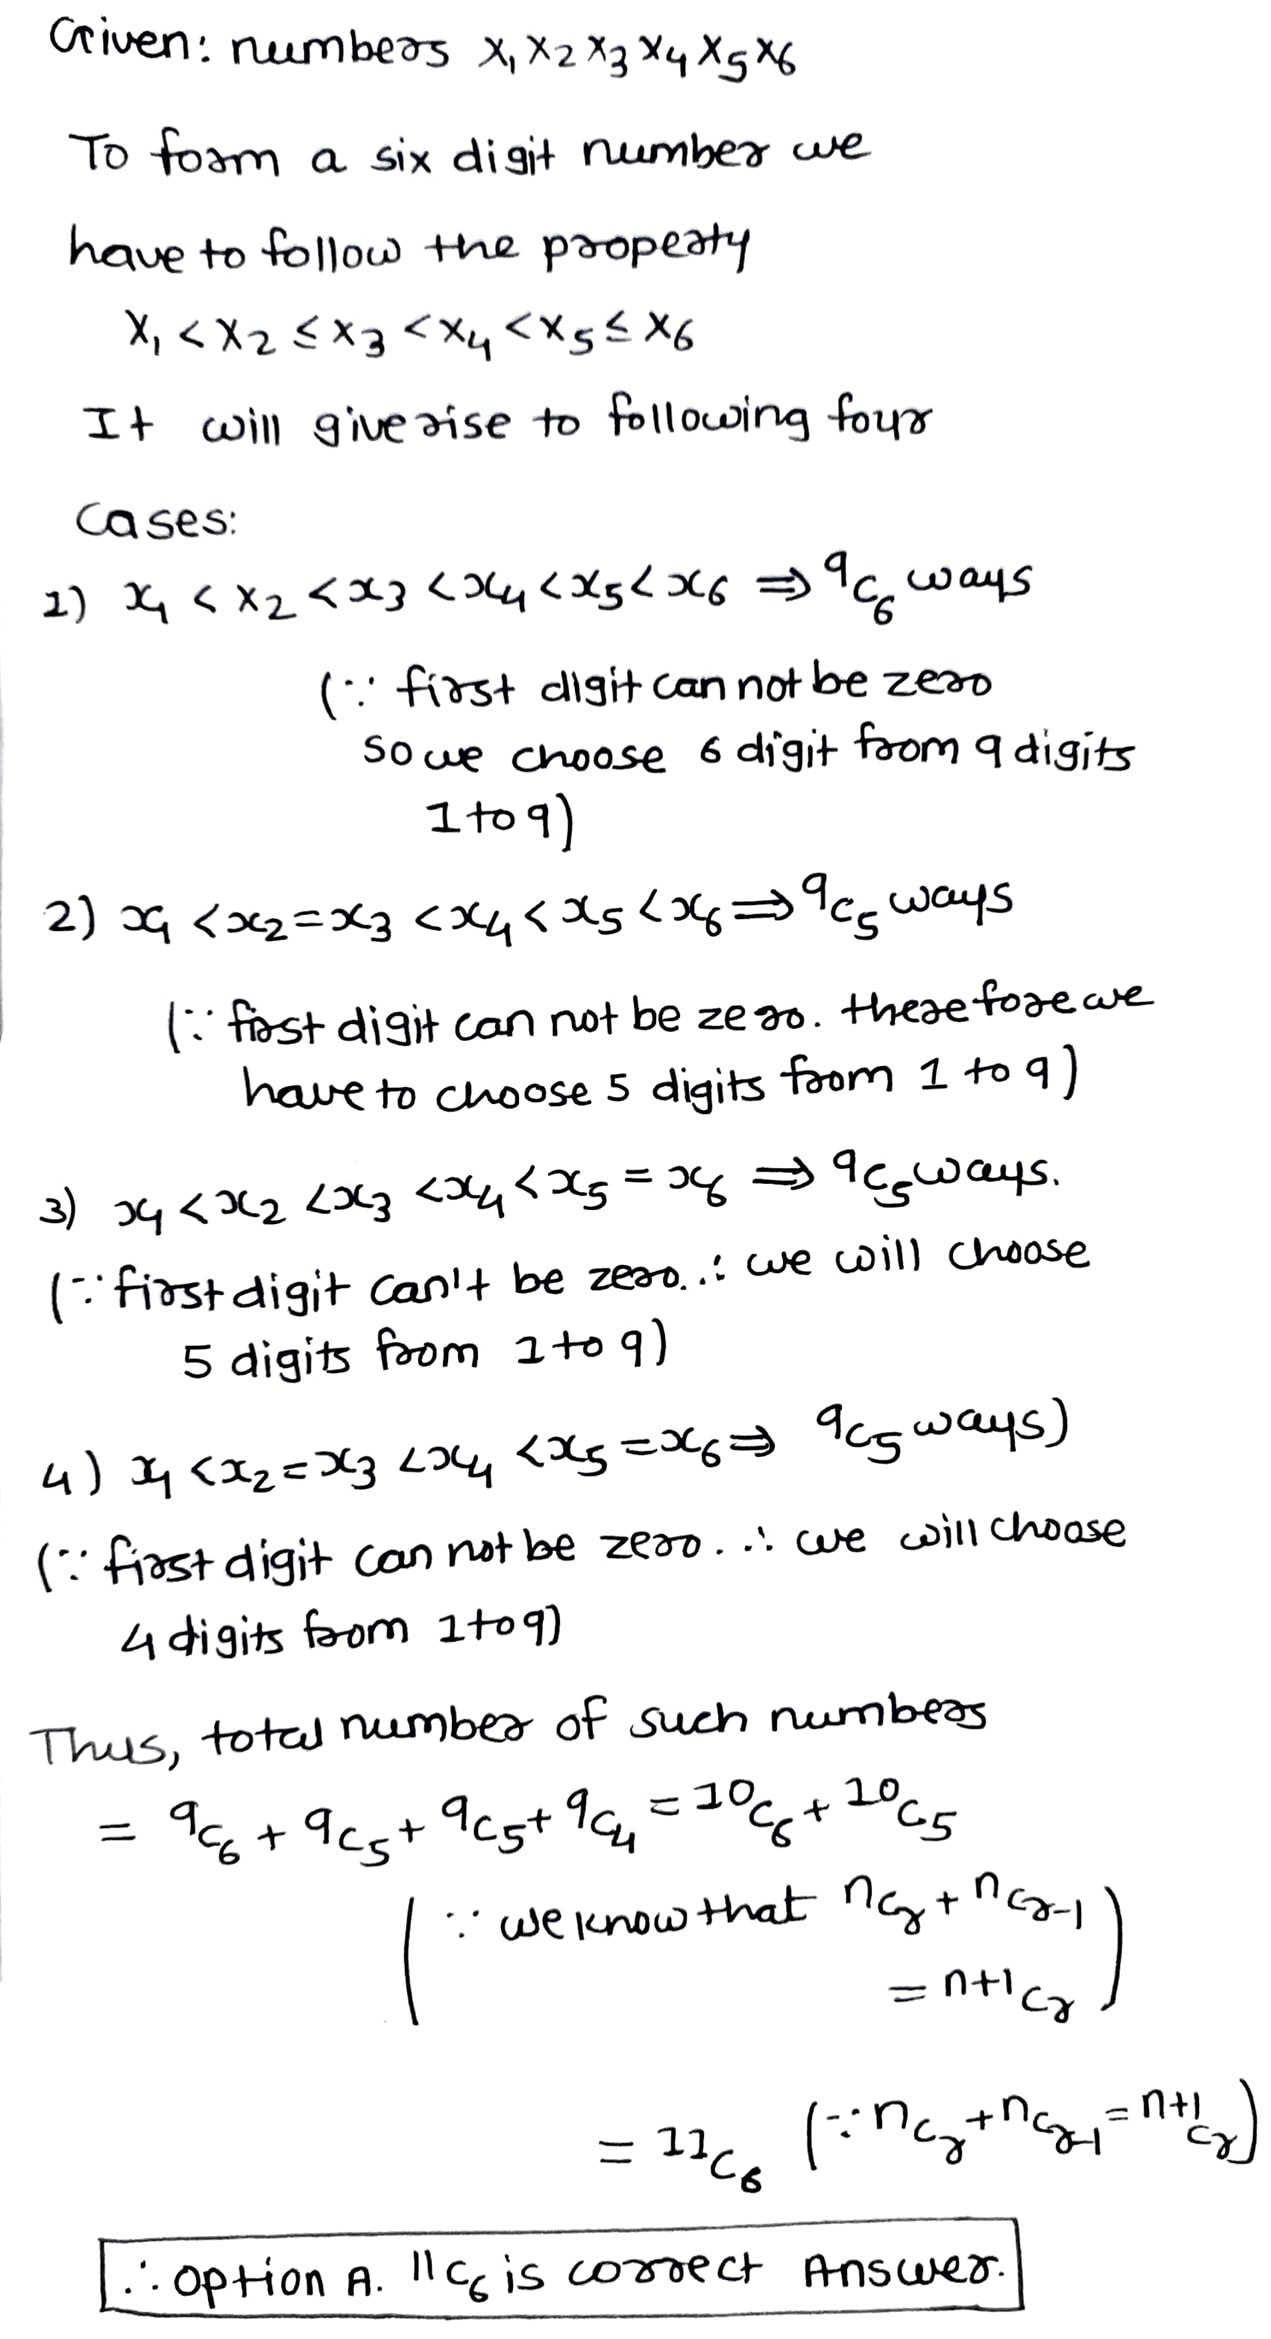 Given: numbers x₁x₂x₃x₄x₅x₆
To form a six digit number we
have to follow the property
x₁ < x₂ ≤ x₃ < x₄ < x₅ ≤ x₆
It will give rise to following four
cases:
1) x₁ < x₂ < x₃ < x₄ < x₅ < x₆ ⇒ ⁹C₆ ways
(∵ first digit can not be zero
so we choose 6 digit from 9 digits
1 to 9)
2) x₁ < x₂ = x₃ < x₄ < x₅ < x₆ ⇒ ⁹C₅ ways
(∵ first digit can not be zero. therefore we
have to choose 5 digits from 1 to 9)
3) x₁ < x₂ < x₃ < x₄ < x₅ = x₆ ⇒ ⁹C₅ ways.
(∵ first digit can't be zero. ∴ we will choose
5 digits from 1 to 9)
4) x₁ < x₂ = x₃ < x₄ < x₅ = x₆ ⇒ ⁹C₅ ways)
(∵ first digit can not be zero. ∴ we will choose
4 digits from 1 to 9)
Thus, total number of such numbers
= ⁹C₆ + ⁹C₅ + ⁹C₅ + ⁹C₄ = ¹⁰C₆ + ¹⁰C₅
(∵ we know that nCr + nCr-1
= n+1Cr)
= ¹¹C₆ (∵ nCr + nCr-1 = n+1Cr)
∴ option A. ¹¹C₆ is correct Answer.